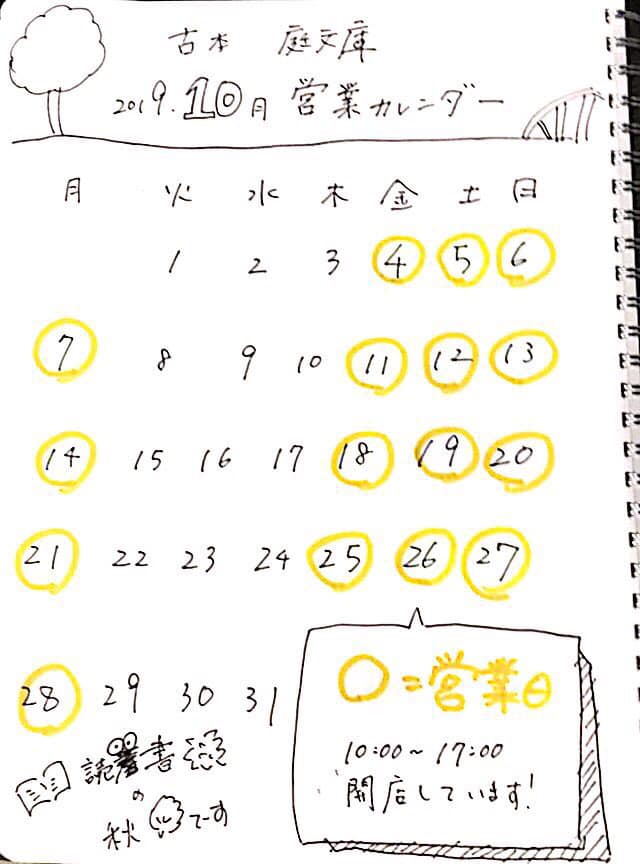 古本 庭文庫
2019.10月 営業カレンダー
月 火 水 木 金 土 日
1 2 3 4 5 6
7 8 9 10 11 12 13
14 15 16 17 18 19 20
21 22 23 24 25 26 27
28 29 30 31
○=営業日
10:00~17:00
開店しています!
読書
の
秋でーす